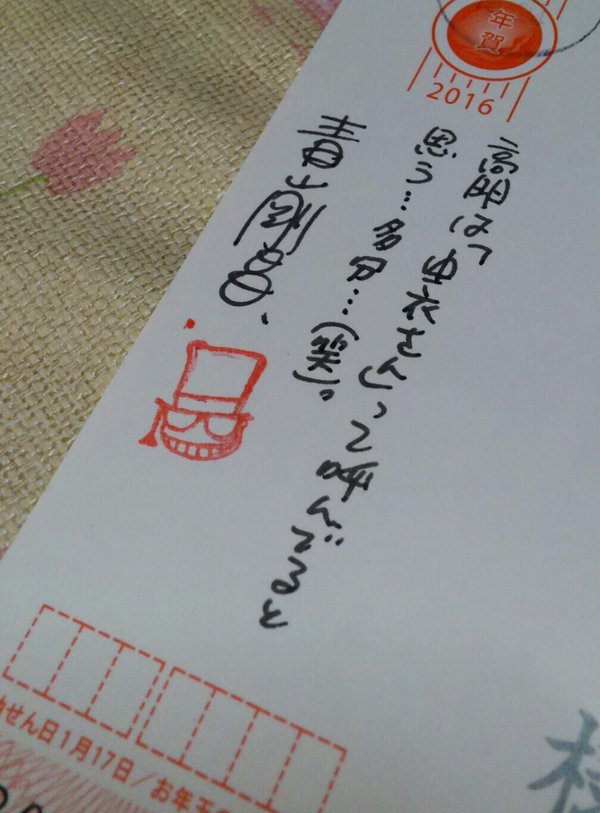 年賀
2016
高明は「由衣さん」って呼んでると
思う…多分…(笑)。
青山剛昌、
抽せん日1月17日/お年玉
様